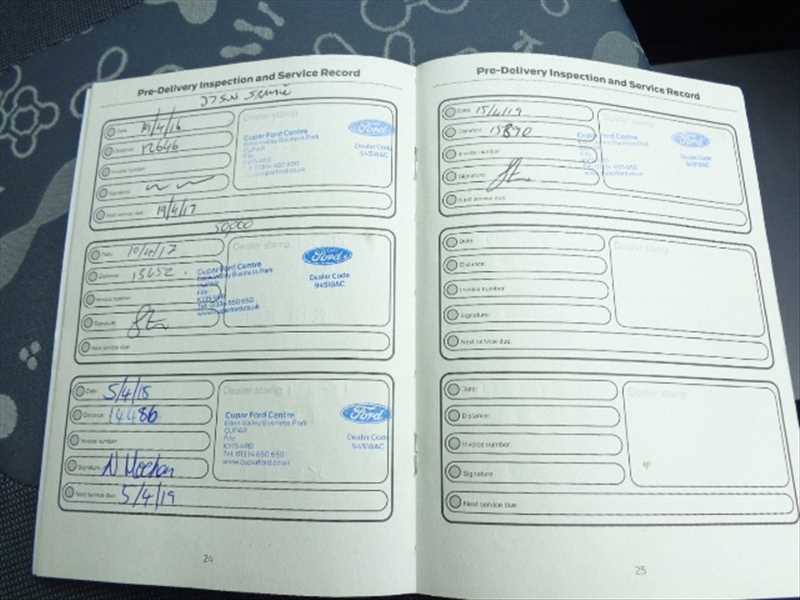 Pre-Delivery Inspection and Service Record
Date 19/4/16
Distance 12646
Invoice number
Signature
Next service due 19/4/17
Dealer stamp
Cupar Ford Centre
Eden Valley Business Park
CUPAR
Fife
Ford
Dealer Code
94518AC
50000
Date 10/4/17
Distance 13652
Invoice number
Signature
Next service due
Dealer stamp
Cupar Ford Centre
Eden Valley Business Park
CUPAR
Fife
KY15 4RD
Tel. 01334 650 650
www.cuparford.co.uk
Ford
Dealer Code
94518AC
Date 5/4/18
Distance 14486
Invoice number
Signature
Next service due 5/4/19
Dealer stamp
Cupar Ford Centre
Eden Valley Business Park
CUPAR
Fife
KY15 4RD
Tel. 01334 650 650
www.cuparford.co.uk
Ford
Dealer Code
94518AC
24
Pre-Delivery Inspection and Service Record
Date 15/4/19
Distance 15890
Invoice number
Signature
Next service due
Cupar Ford Centre
Ford
Dealer Code
94518AC
Date
Distance
Invoice number
Signature
Next service due
Dealer stamp
Date
Distance
Invoice number
Signature
Next service due
Dealer stamp
25